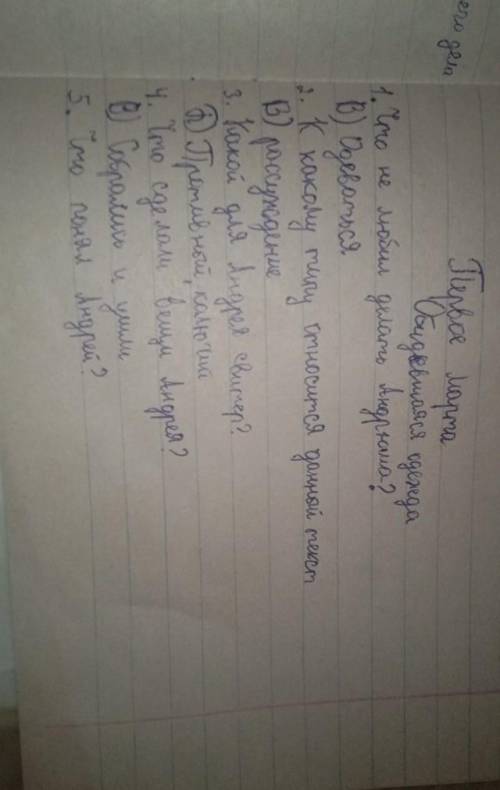 его дела
Первое марта
Обидевшаяся одежда
1. Что не любил делать Андрюша?
В) Одеваться
2. К какому типу относится данной текст
В) рассуждение
3. Какой для Андрея свитер?
А) Противной, колючий
4. Что сделали вещи Андрея?
В) Собрались и ушли
5. Что понял Андрей?